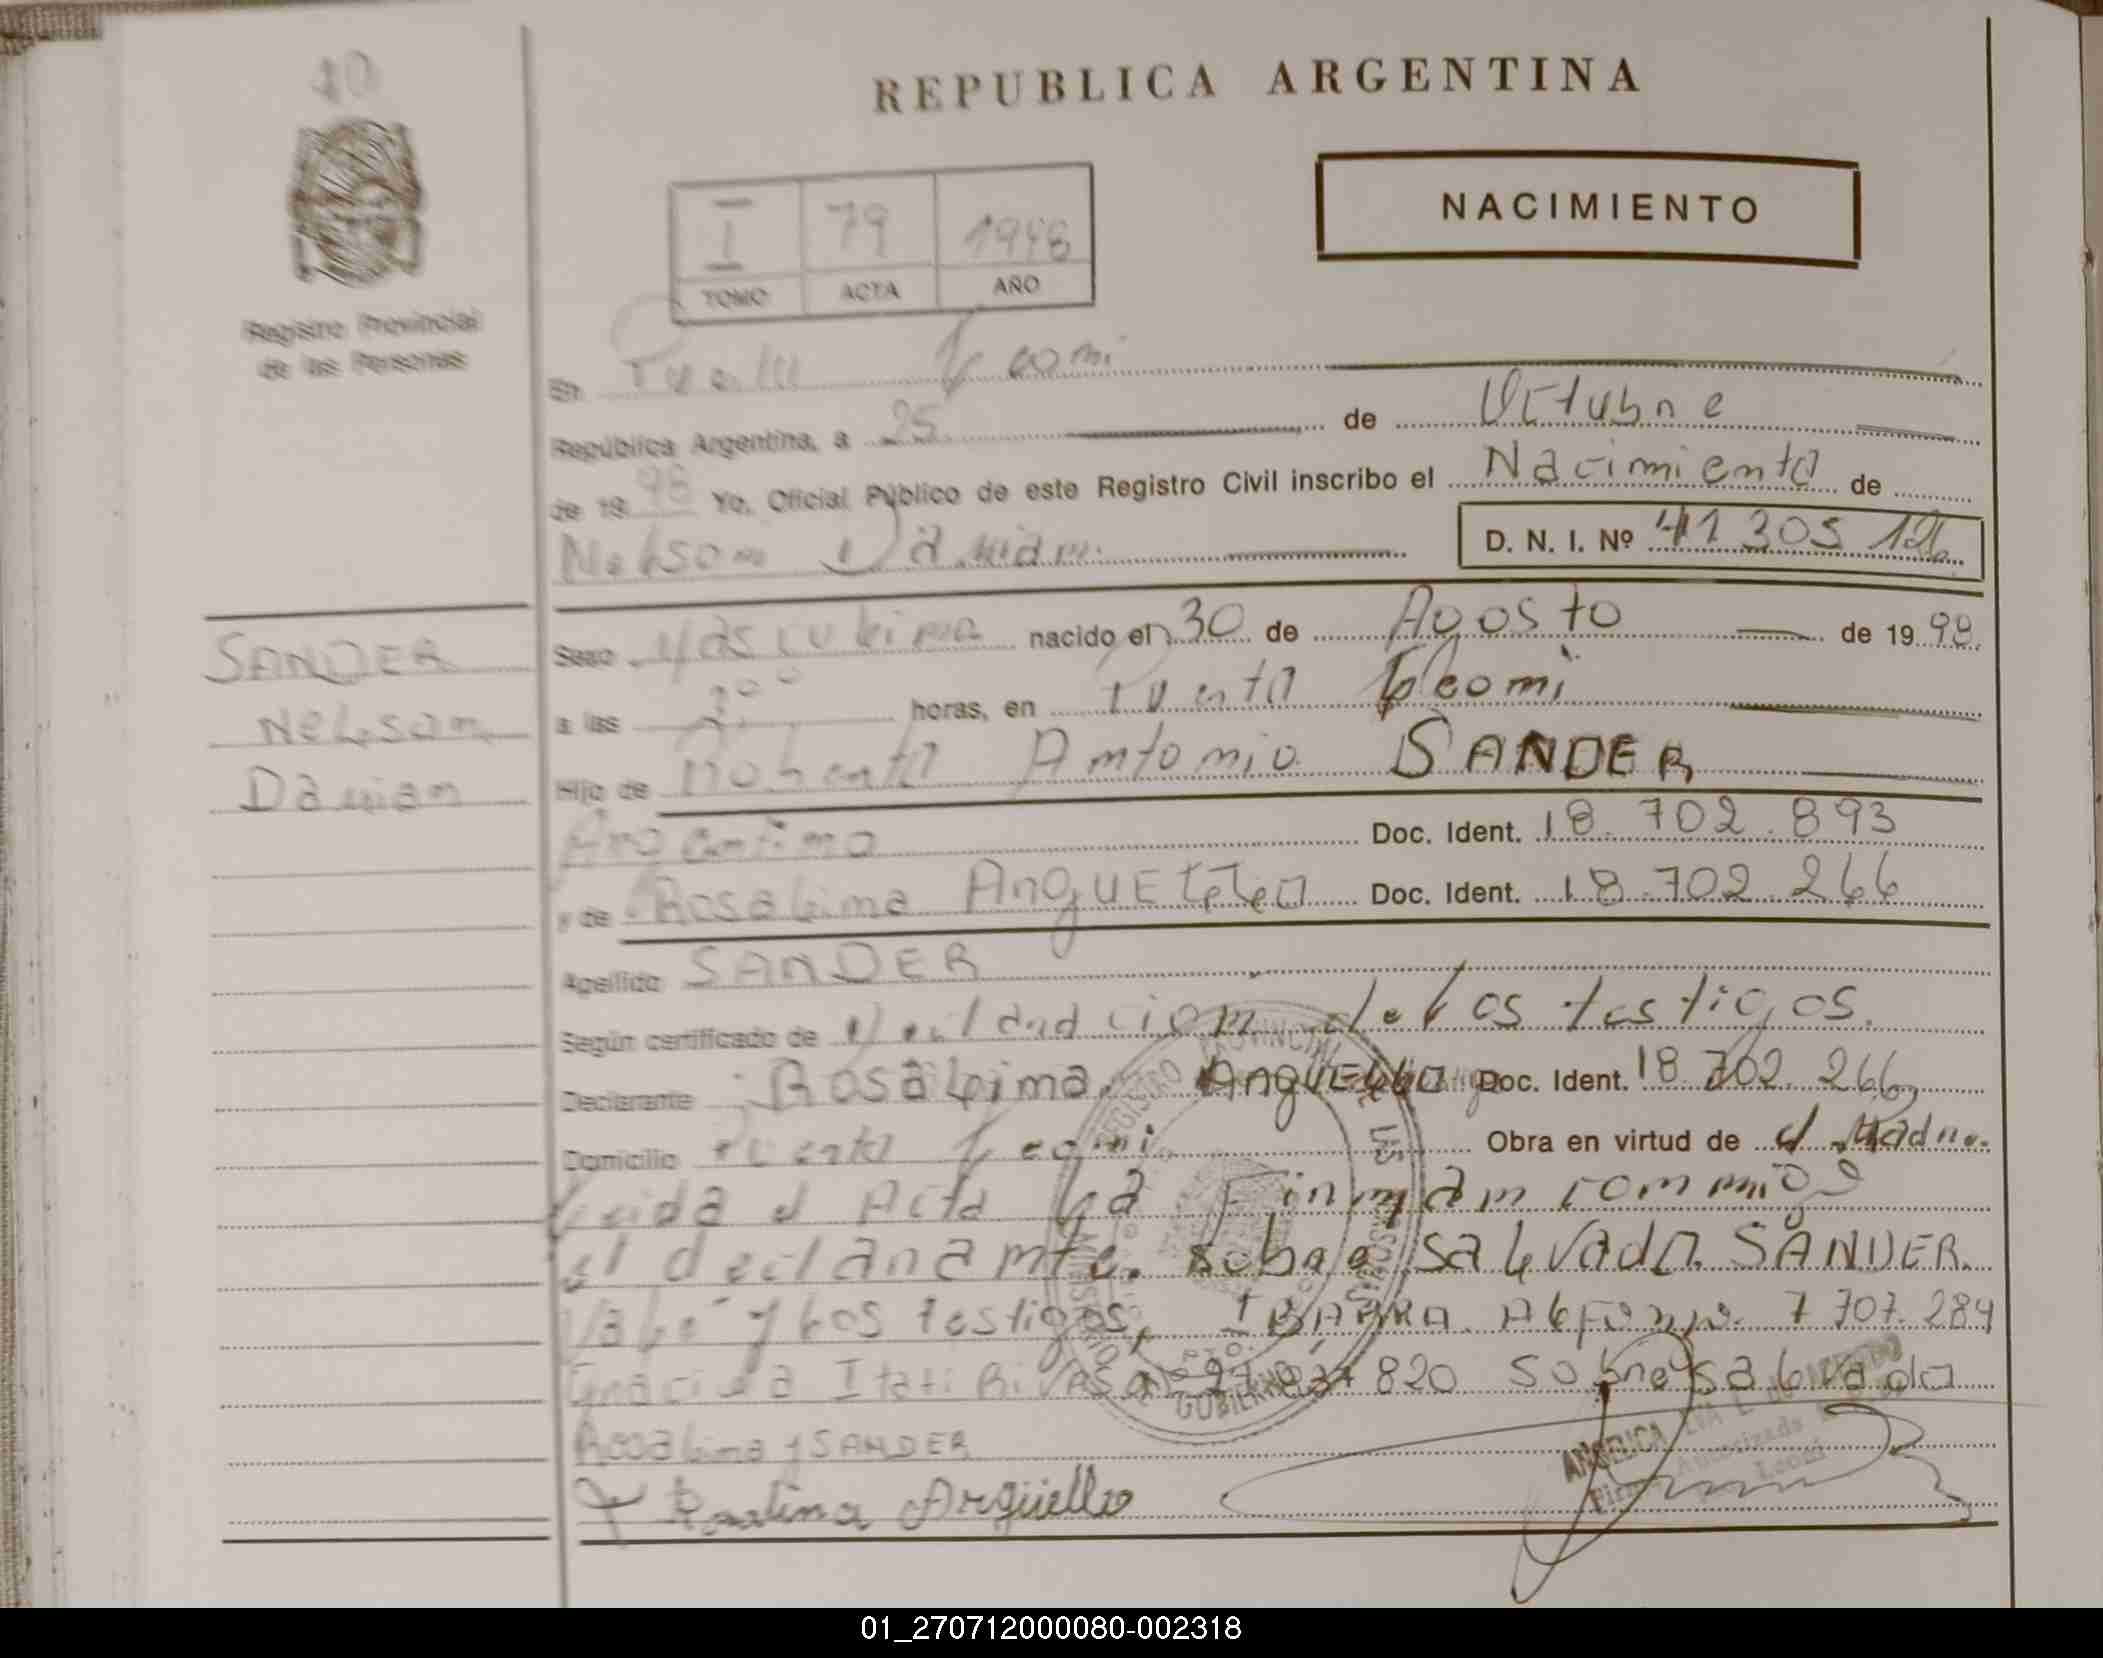 40
REPUBLICA ARGENTINA
NACIMIENTO
I 79 1998
TOMO ACTA AÑO
Registro Provincial
de las Personas
En Puerto Leoni
República Argentina, a 25 de Octubre
de 1998 Yo, Oficial Público de este Registro Civil inscribo el Nacimiento de
Nelson Damian D. N. I. Nº 41 305 126
SANDER
Nelson
Damian
Sexo Masculino nacido el 30 de Agosto de 1998
a las horas, en Puerto Leoni
Hijo de Roberto Antonio SANDER
Argentino Doc. Ident. 18.702.893
y de Rosalina Arguello Doc. Ident. 18.702.266
Apellido SANDER
Según certificado de de los testigos.
Declarante Rosalina Arguello Doc. Ident. 18 702 266
Domicilio Puerto Leoni Obra en virtud de el Madre.
Leida el Acta la Firman conmigo
el declarante. sobre salvado SANDER.
Vale y los testigos, IBARRA Alfonso 7 707.284
Graciela Itati Rivas 820 sobresalvado
Rosalina y SANDER
Rosalina Argüello
REGISTRO PROVINCIAL DE LAS PERSONAS
MINISTERIO GOBIERNO
ANGELICA EVA L. DE
Autorizada
Leoni
01_270712000080-002318